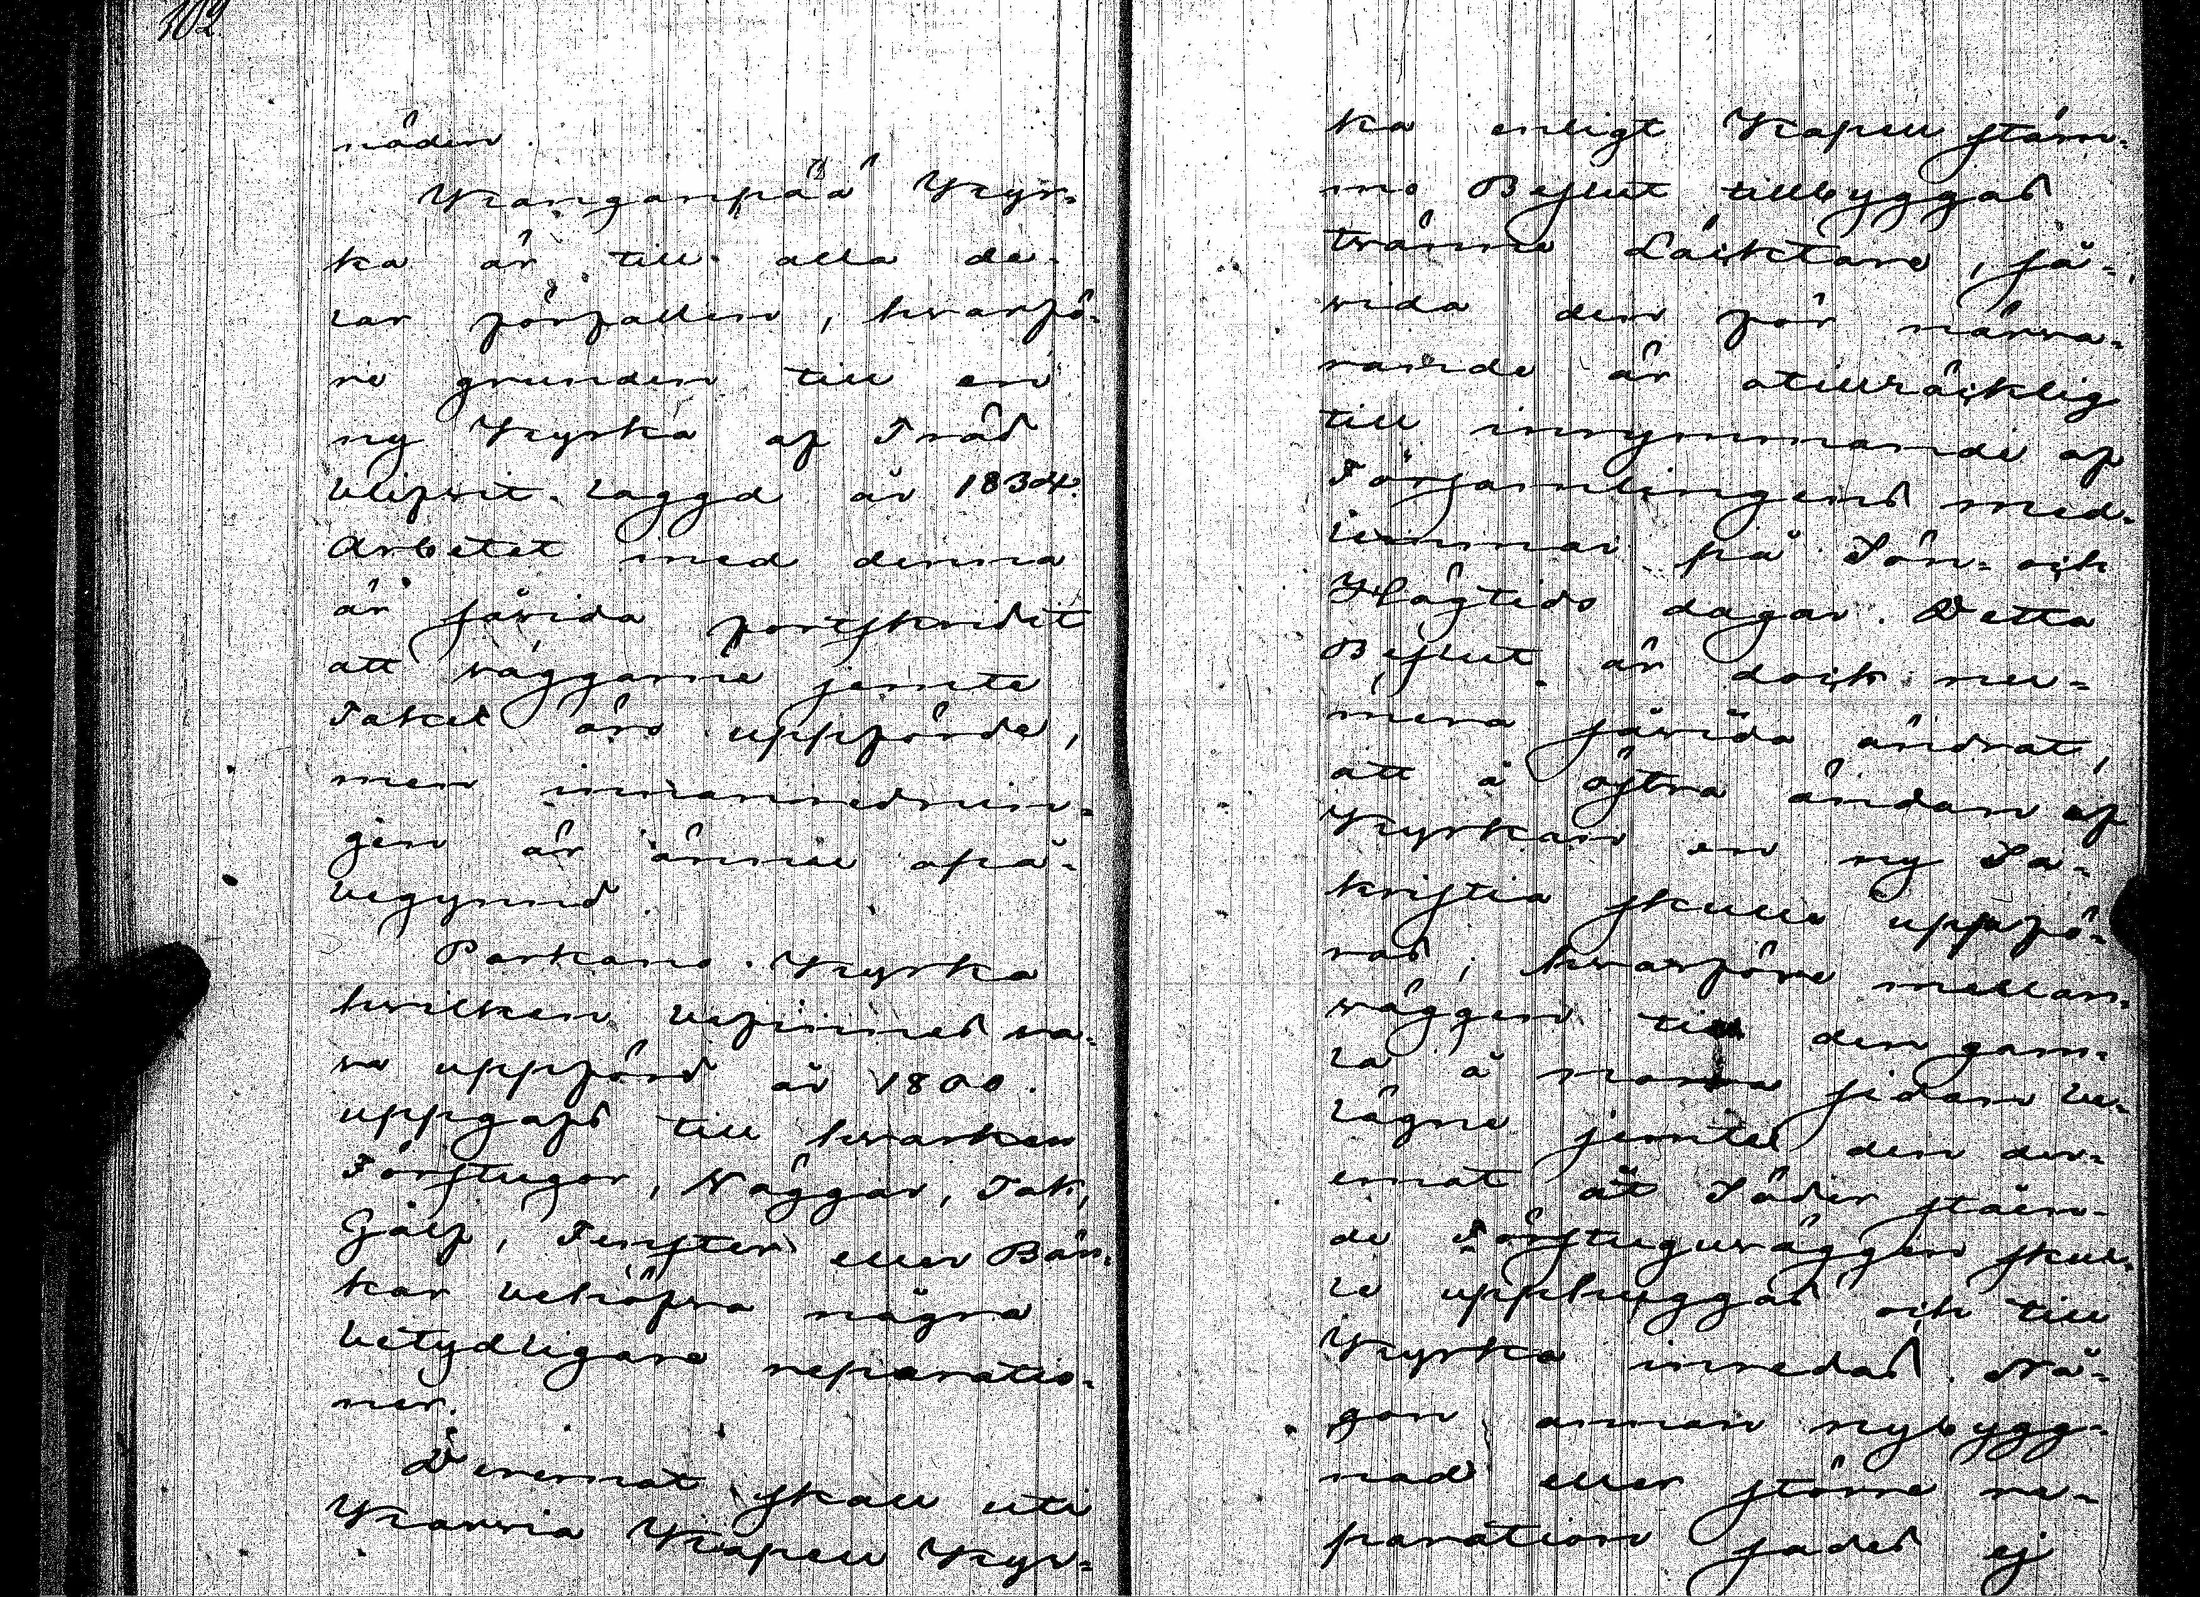 102.
nåden.
Kanganpää Kyr-
ka är till alla de-
lar förfallen, hvarfö-
re grunden till en
ny Kyrka af Träd
blifvit laggd år 1834.
Arbetet med denna
är såvida fortskridit
att väggarne jemte
Taket äro uppförde,
men innanrednin-
gen är ännu opå-
begynnd.
Parkano Kyrka
hvilken befinnes va-
ra uppförd år 1800.
uppgafs till hvarken
Förstugor, Väggar, Tak,
Golf, Fenster eller Bän-
kar behöfva några
betydligare reparatio-
ner.
Deremot skall uti
Karvia Kapell Kyr-
ka enligt Kapell stäm-
mo Beslut tillbyggas
tvänne Läcktare, så-
vida den för närva-
rande är otillräcklig
till inrymmande af
Församlingens med-
lemmar på Sön- och
Högtids dagar. Detta
Beslut är dock nu-
mera såvida ändrat,
att å östra ändan af
Kyrkan en ny Sa-
kristia skulle uppfö-
ras, hvarföre mellan-
väggen till den gam-
la å norra sidan be-
lägne jemte den der-
emot åt Söder ståen-
de Förstuguväggen skul-
le upphyggas och till
Kyrka inredas. Nå-
gon annan nybygg-
nad eller större re-
paration sades ej